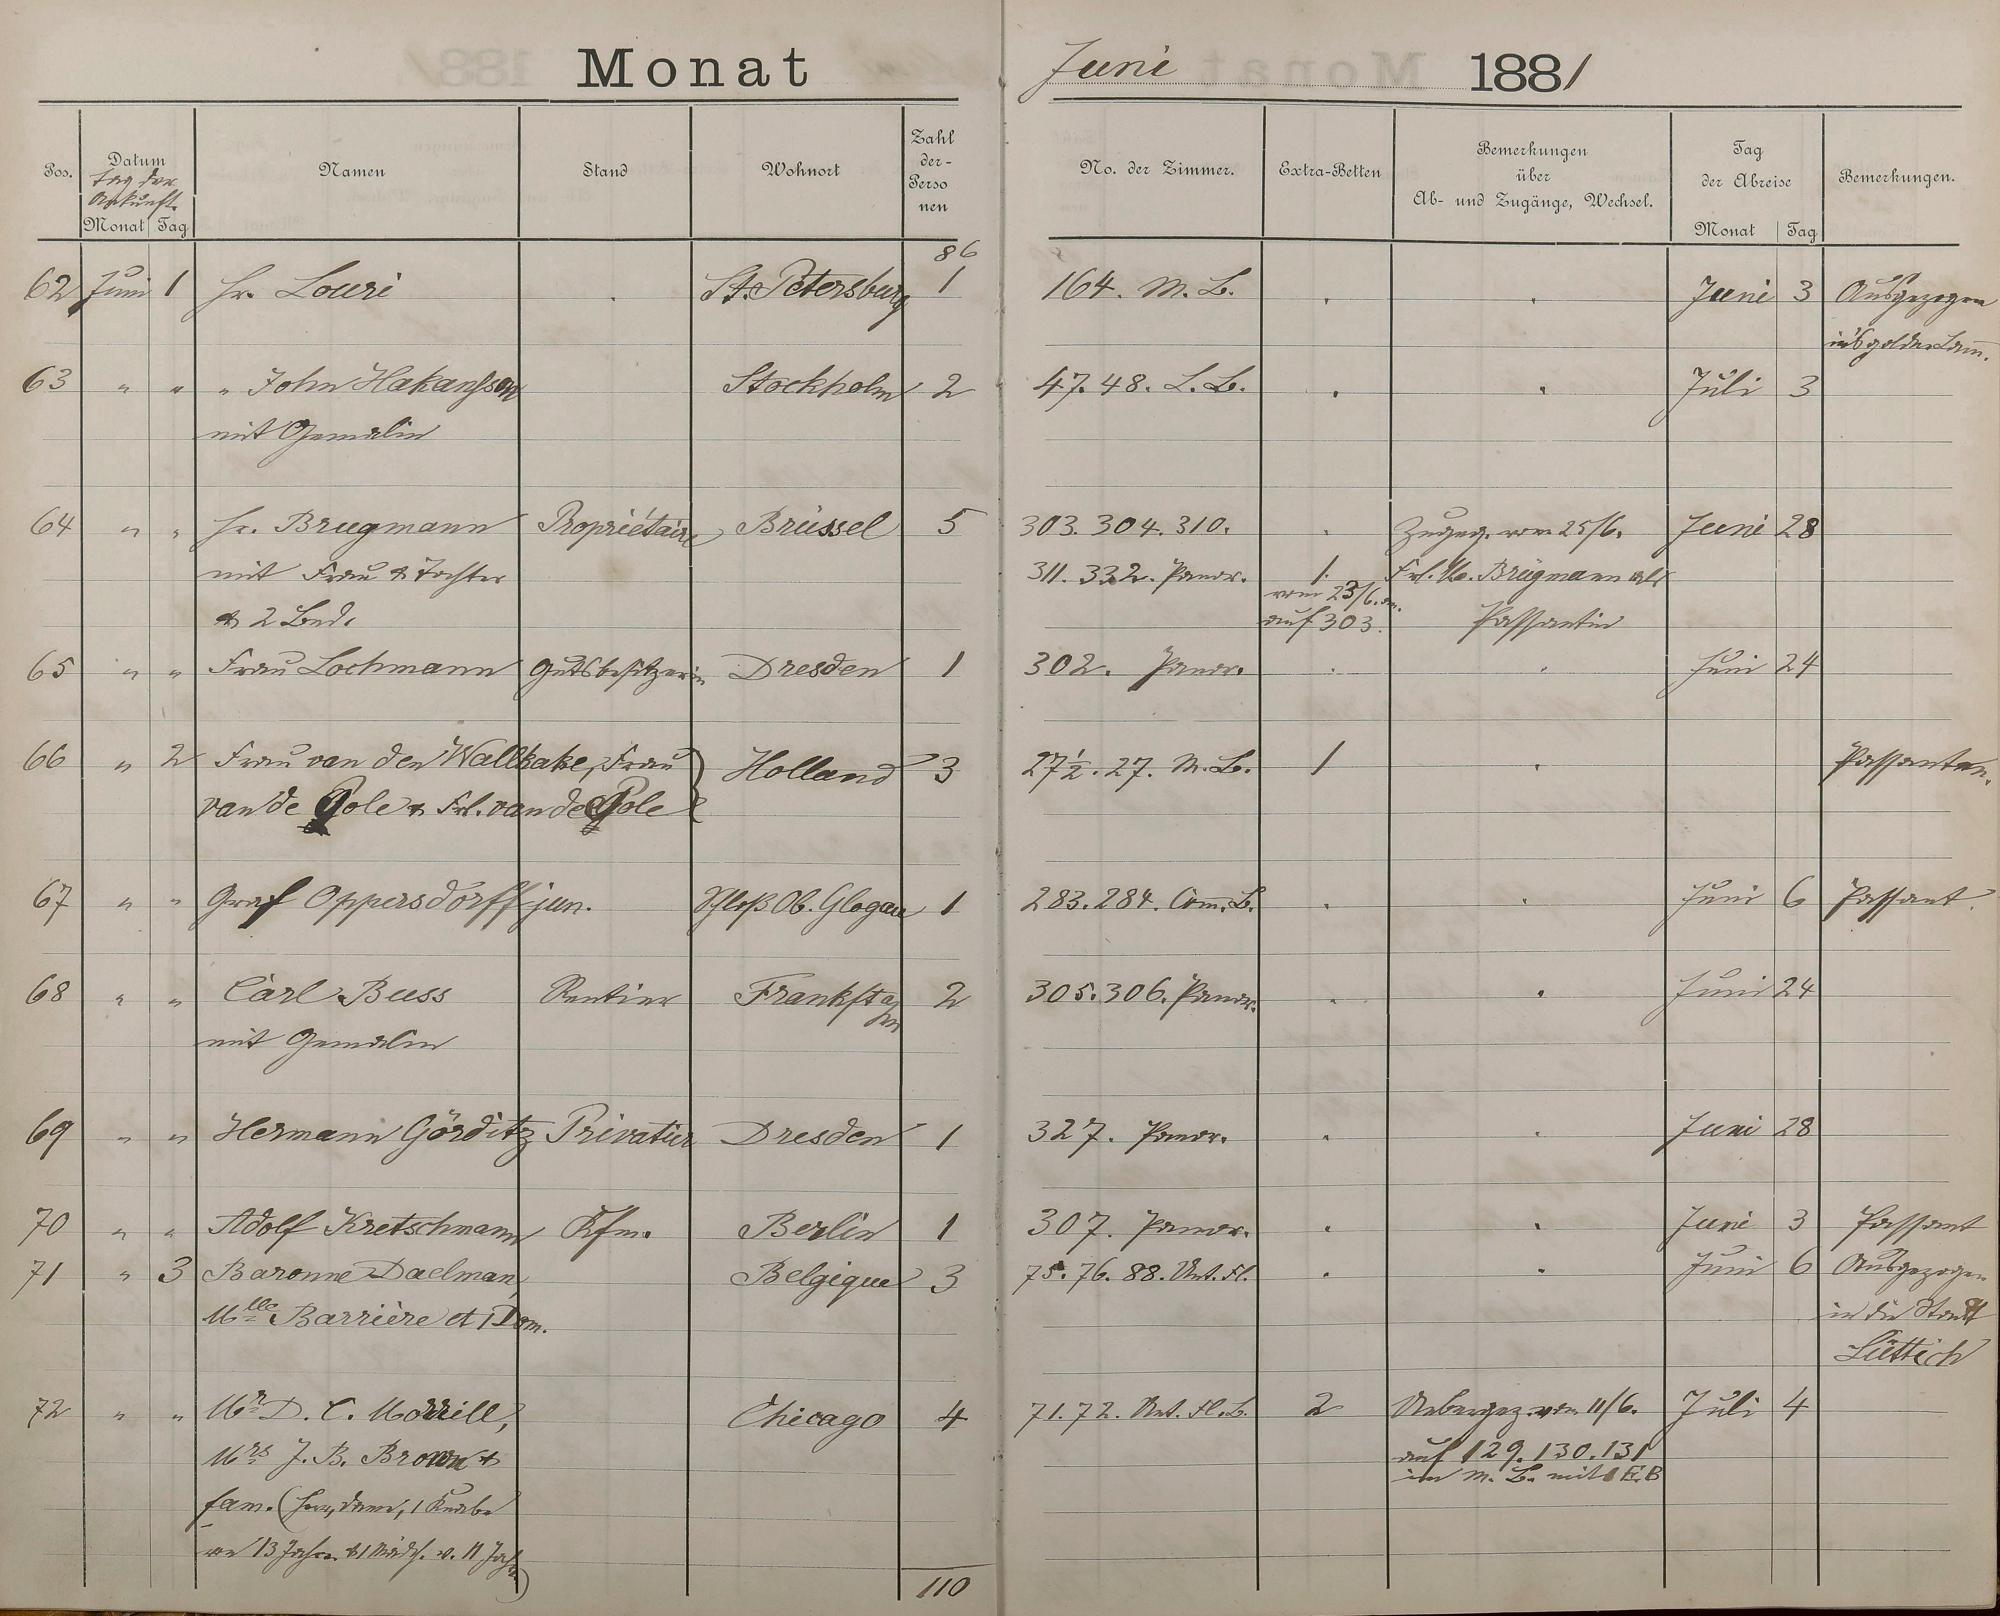 Monat
Juni 1881
Pos. Datum Namen Stand Wohnort Zahl der- Perso nen No. der Zimmer. Extra-Betten Bemerkungen über Ab- und Zugänge, Wechsel. Tag der Abreise Bemerkungen.
Tag der Ankunft.
Monat Tag Monat Tag
86
62 Juni 1 Hr. Louri St. Petersburg 1 164. M. B. Juni 3 Ausgezogen
in's golden Lam.
63 " " " John Hakansson Stockholm 2 47. 48. L. B. Juli 3
mit Gemalin
64 " " Hr. Brugmann Propriétaire Brüssel 5 303. 304. 310. Zugeg. vom 25/6. Juni 28
mit Frau & Tochter 311. 332. Panor. 1. Frl. M. Brügmann als
vom 23/6. an.
& 2 Bed. auf 303. Passantin
65 " " Frau Lochmann Gutsbesitzerin Dresden 1 302. Panor. Juni 24
66 " 2 Frau van den Wallbake, Frau Holland 3 27½. 27. M. B. 1 Passanten.
van de Pole & Frl. van de Pole
67 " " Graf Oppersdorff jun. Schloß Ob. Glogau 1 283. 284. Com. B. Juni 6 Passant.
68 " " Carl Buss Rentier Frankft a/m 2 305. 306. Panor. Juni 24
mit Gemalin
69 " " Hermann Görditz Privatier Dresden 1 327. Panor. Juni 28
70 " " Adolf Kretschmann Kfm. Berlin 1 307. Panor. Juni 3 Passant
71 " 3 Baronne Daelman, Belgique 3 75. 76. 88. Unt. Fl. Juni 6 Ausgezogen
Mlle. Barrière et 1 Dom. in die Stadt
Lüttich
72 " " Mr. D. C. Morrill, Chicago 4 71. 72. Unt. Fl. B. 2 Uebergez. vom 11/6. Juli 4
Mrs J. B. Brown & auf 129. 130. 131
im M. B. mit 1 E. B
fam. (Herr, Dame, 1 Knabe
von 13 Jahren & 1 Mädch. v. 11 Jahr.)
110